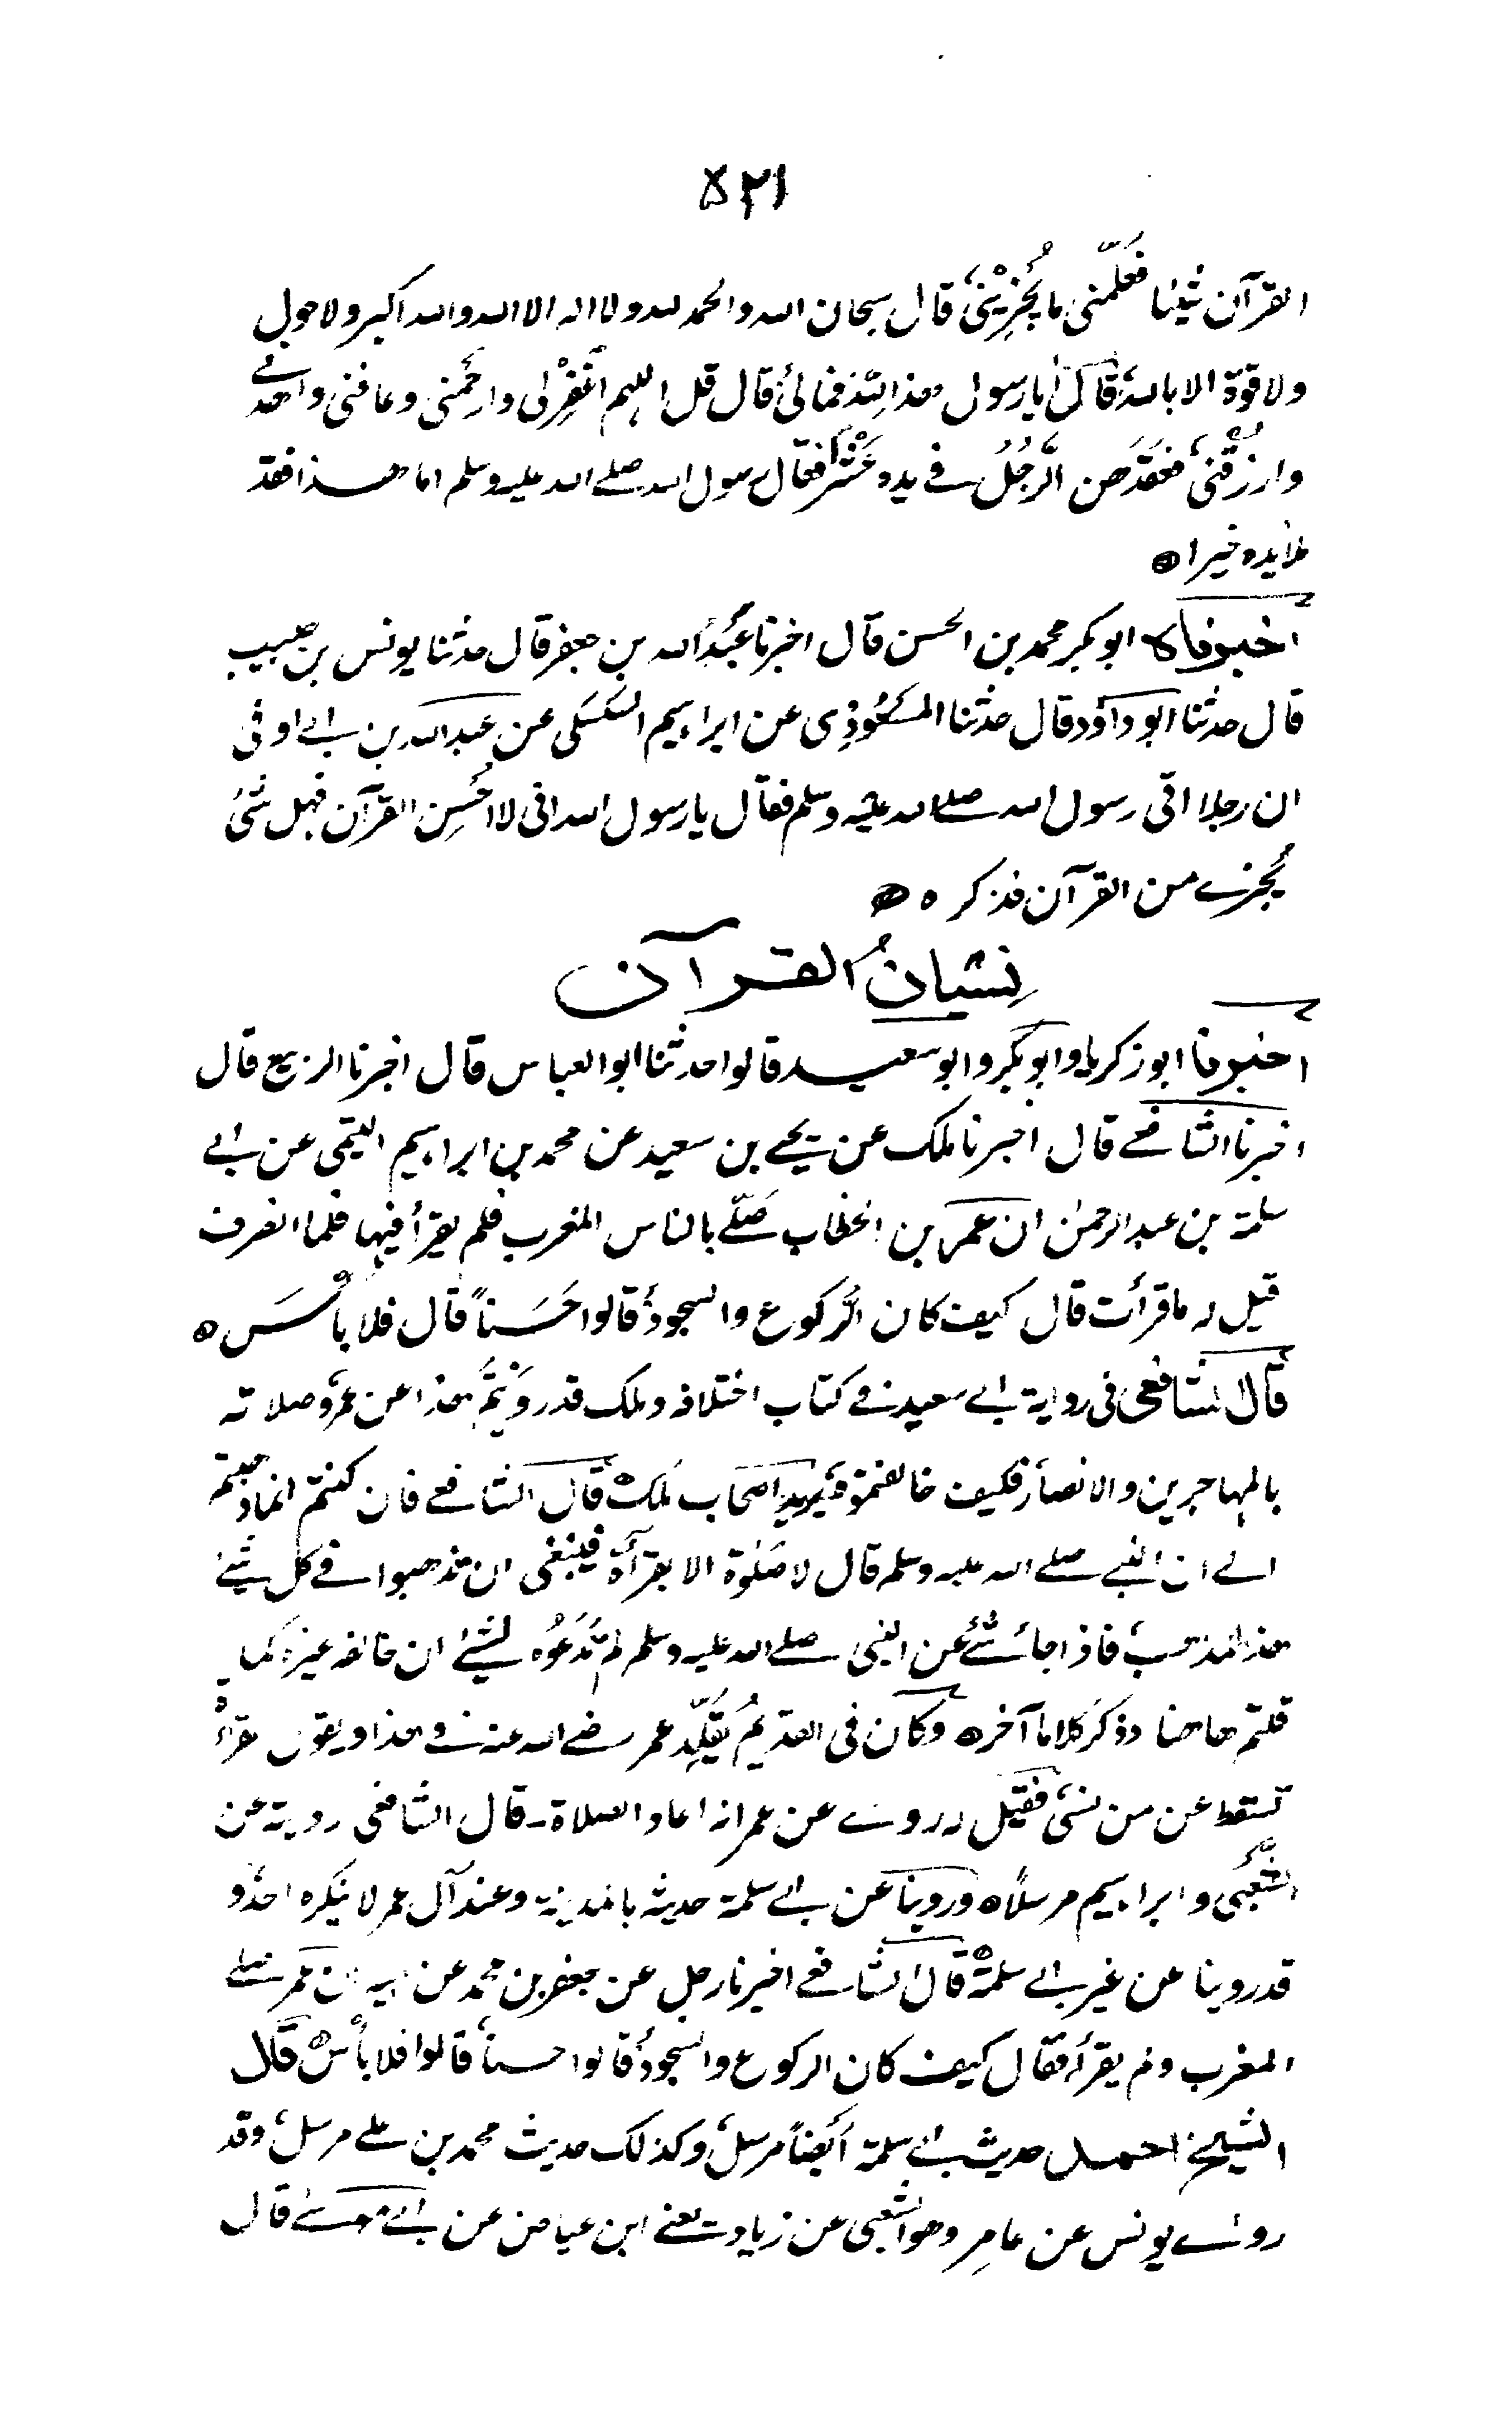 ٥٢١
القرآن شيئا فعلّمني ما يُجْزِيْنِيْ قال سبحان الله والحمد لله ولا اله الا الله والله اكبر ولا حول
ولا قوة الا بالله قال يا رسول هذا لله فما لي قال قل اللهم اغْفِرْلي وارحَمني وعافني واهدني
وارزقني فعقدهن الرَّجُلُ في يده عَشْرًا فقال رسول الله صلى الله عليه وسلم اما هذا فقد
ملأ يده خيرا ه
اخبرناه ابو بكر محمد بن الحسن قال اخبرنا عَبْدُ الله بن جعفر قال حدثنا يونس بن حبيب
قال حدثنا ابو داؤد قال حدثنا المسعُوْدِي عن ابراهيم السكسكي عن عبد الله بن ابي اوفى
ان رجلا اتى رسول الله صلى الله عليه وسلم فقال يا رسول الله انى لا اُحسِن القرآن فهل شئ
يُجزى من القرآن فذكره ه
نِسْيانُ القرآن
اخبرنا ابو زكريا وابو بكر وابو سعيد قالوا حدثنا ابو العباس قال اخبرنا الربيع قال
اخبرنا الشافعي قال اخبرنا ملك عن يحيى بن سعيد عن محمد بن ابراهيم التيمي عن ابي
سلمة بن عبد الرحمٰن ان عمر بن الخطاب صَلّى بالناس المغرب فلم يقرأ فيها فلما انصرف
قيل له ما قرأت قال كيف كان الرُّكوع والسجود قالوا حَسَناً قال فلا بأسَ ه
قال الشافعي في رواية ابي سعيد في كتاب اختلافه وملك قد رويتم هذا عن عمر وصلاته
بالمهاجرين والانصار فكيف خالفتموه يُريد اصحاب ملك ه قال الشافعي فان كنتم انما ذهبتم
الى ان النبي صلى الله عليه وسلم قال لا صلوة الا بقرآة فينبغى ان تذهبوا في كل شئ
هذا المذهب فاذا جاء شئ عن النبي صلى الله عليه وسلم لم تَدَعُوْه لشئ ان خالفه غيره كما
قلتم هاهنا وذكر كلاما آخر ه وكان في القديم يُقلِّد عمر رضي الله عنه في هذا ويقول القراءة
تسقط عن من نسى فقيل له روى عن عمر انه اعاد الصلاة - قال الشافعي رويته عن
الشَّعْبِي وابراهيم مرسلاً ه وروينا عن ابي سلمة حديثه بالمدينة وعند آل عمر لا ينكره احد و
قد روينا عن غير ابي سلمة ه قال الشافعي اخبرنا رجل عن جعفر بن محمد عن ابيه ان عمر صلى
المغرب ولم يقرأ فقال كيف كان الركوع والسجود قالوا حسناً قالوا فلا بأس ه قال
الشيخ احمد حديث ابي سلمة أيضاً مرسل وكذلك حديث محمد بن علي مرسل وقد
رواه يونس عن عامر وهو الشعبي عن زياد يعني ابن عياض عن ابي موسى قال